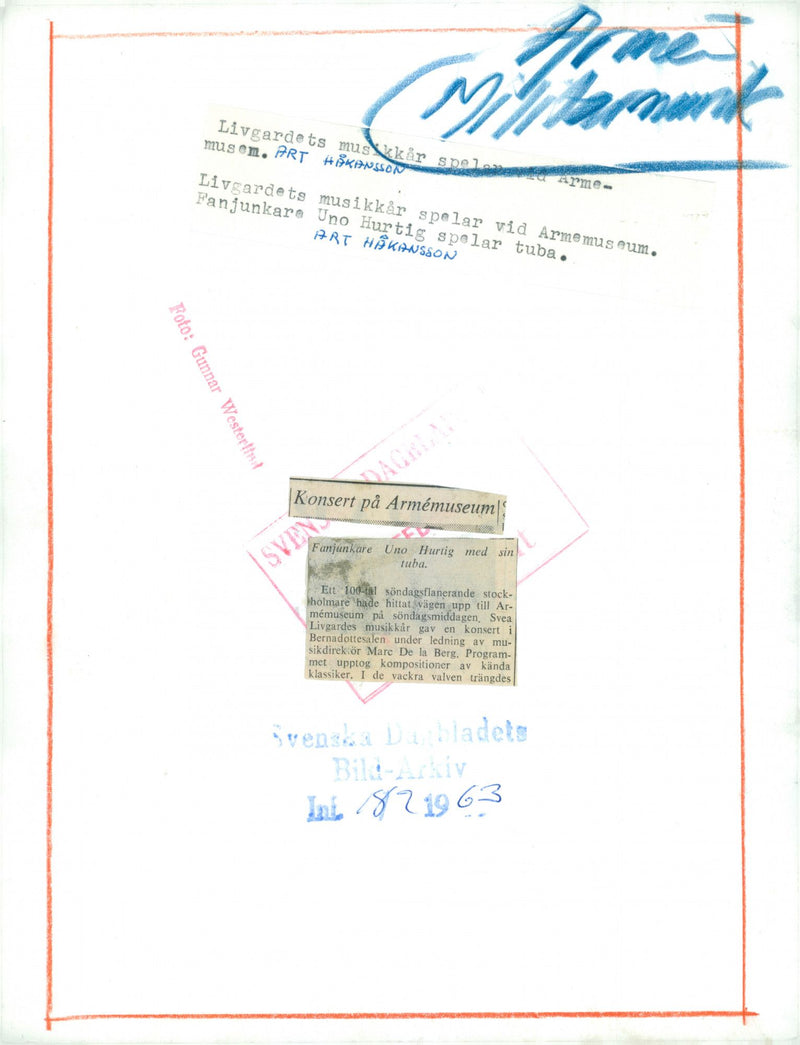 Armé-
Militärmusik
Livgardets musikkår spelar vid Arme-
museum. ART HÅKANSSON
Livgardets musikkår spelar vid Armemuseum.
Fanjunkare Uno Hurtig spelar tuba.
ART HÅKANSSON
Foto: Gunnar Westerlind
Konsert på Armémuseum
Fanjunkare Uno Hurtig med sin
tuba.
Ett 100-tal söndagsflanerande stock-
holmare hade hittat vägen upp till Ar-
mémuseum på söndagsmiddagen. Svea
Livgardes musikkår gav en konsert i
Bernadottesalen under ledning av mu-
sikdirektör Marc De la Berg. Program-
met upptog kompositioner av kända
klassiker. I de vackra valven trängdes
Svenska Dagbladets
Bild-Arkiv
Inl. 18/2 1963